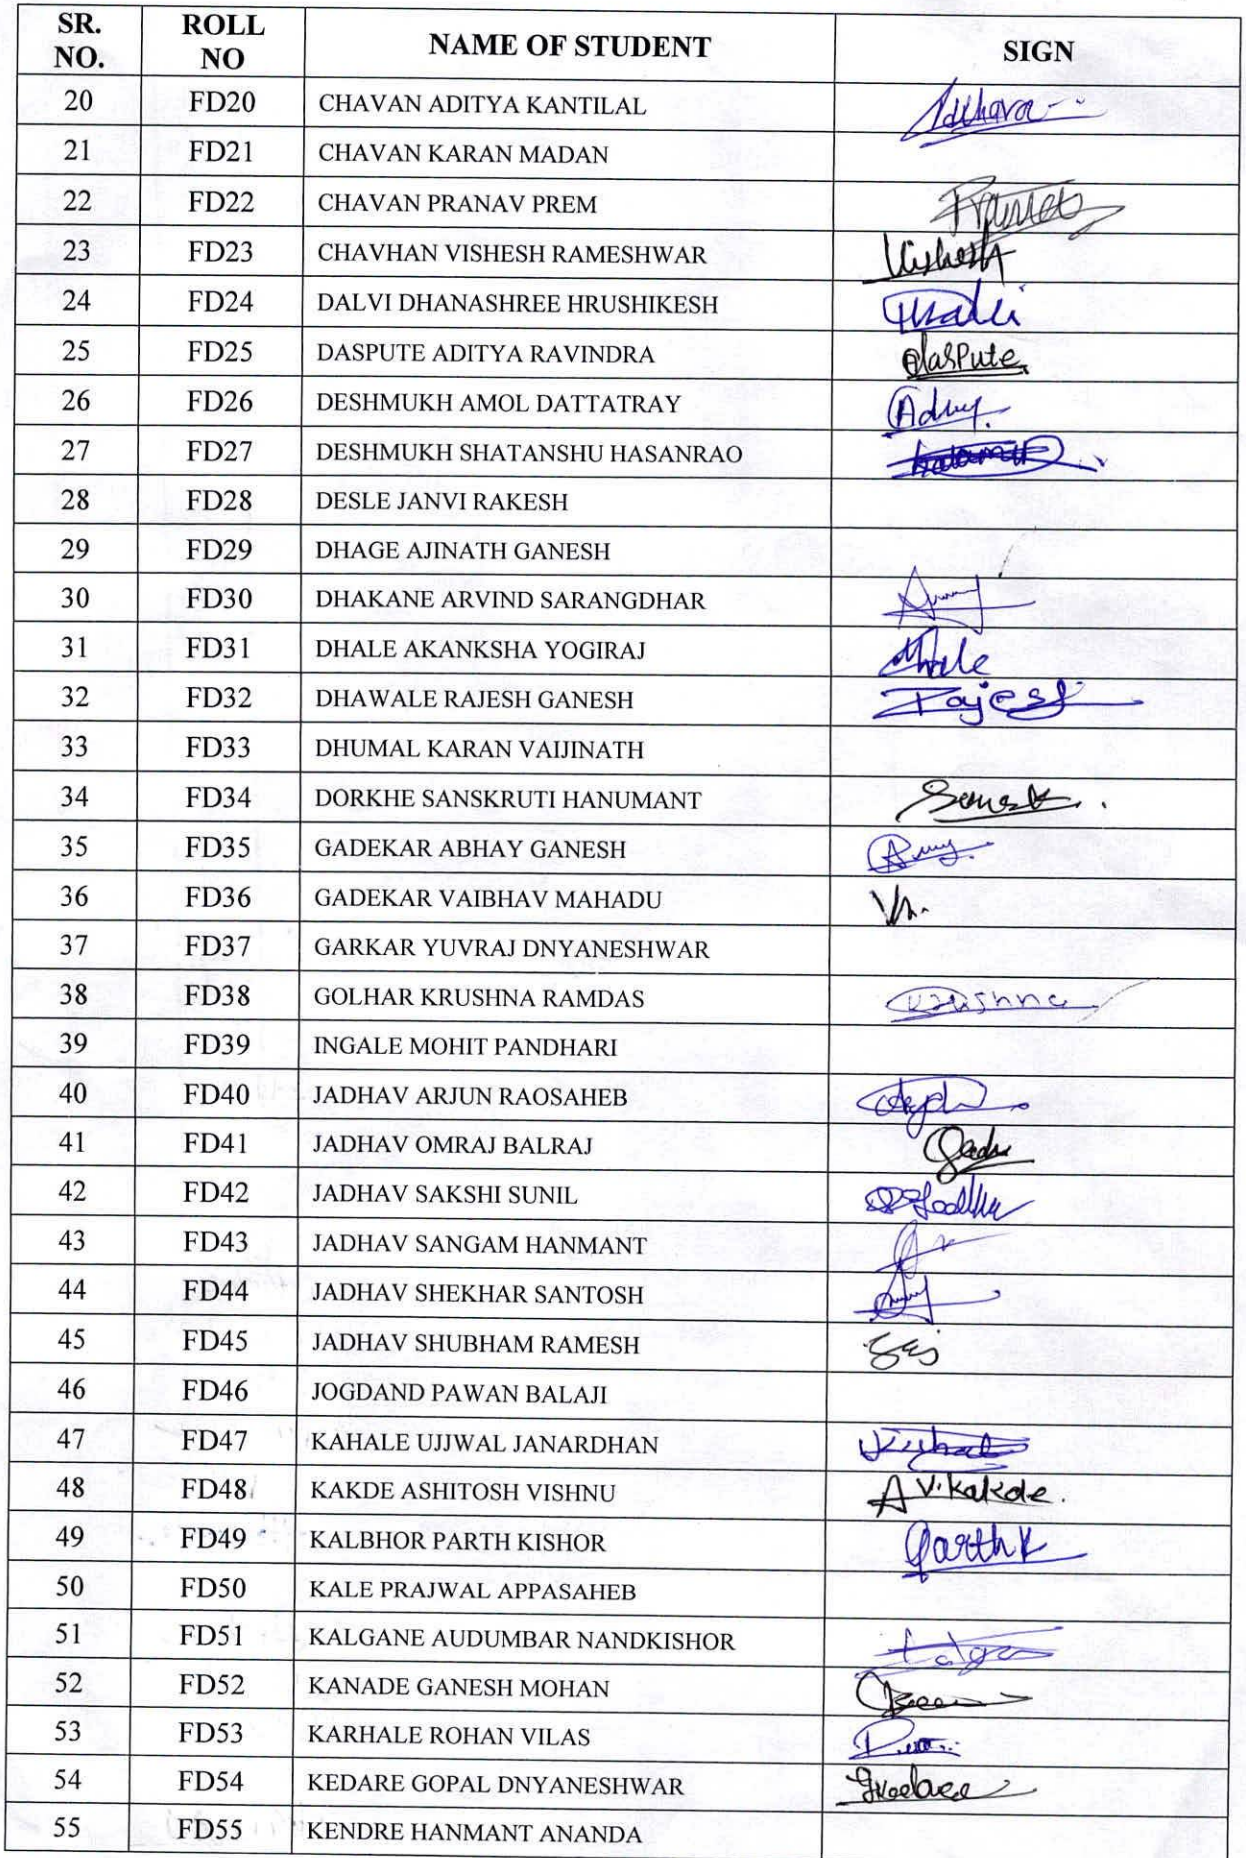 SR. NO. ROLL NO NAME OF STUDENT SIGN
20 FD20 CHAVAN ADITYA KANTILAL
21 FD21 CHAVAN KARAN MADAN
22 FD22 CHAVAN PRANAV PREM
23 FD23 CHAVHAN VISHESH RAMESHWAR Vishesh
24 FD24 DALVI DHANASHREE HRUSHIKESH
25 FD25 DASPUTE ADITYA RAVINDRA
26 FD26 DESHMUKH AMOL DATTATRAY
27 FD27 DESHMUKH SHATANSHU HASANRAO
28 FD28 DESLE JANVI RAKESH
29 FD29 DHAGE AJINATH GANESH
30 FD30 DHAKANE ARVIND SARANGDHAR
31 FD31 DHALE AKANKSHA YOGIRAJ
32 FD32 DHAWALE RAJESH GANESH Rajesh
33 FD33 DHUMAL KARAN VAIJINATH
34 FD34 DORKHE SANSKRUTI HANUMANT
35 FD35 GADEKAR ABHAY GANESH
36 FD36 GADEKAR VAIBHAV MAHADU
37 FD37 GARKAR YUVRAJ DNYANESHWAR
38 FD38 GOLHAR KRUSHNA RAMDAS Krushna
39 FD39 INGALE MOHIT PANDHARI
40 FD40 JADHAV ARJUN RAOSAHEB
41 FD41 JADHAV OMRAJ BALRAJ
42 FD42 JADHAV SAKSHI SUNIL
43 FD43 JADHAV SANGAM HANMANT
44 FD44 JADHAV SHEKHAR SANTOSH
45 FD45 JADHAV SHUBHAM RAMESH
46 FD46 JOGDAND PAWAN BALAJI
47 FD47 KAHALE UJJWAL JANARDHAN
48 FD48 KAKDE ASHITOSH VISHNU A V. Kakde.
49 FD49 KALBHOR PARTH KISHOR Parth K
50 FD50 KALE PRAJWAL APPASAHEB
51 FD51 KALGANE AUDUMBAR NANDKISHOR
52 FD52 KANADE GANESH MOHAN
53 FD53 KARHALE ROHAN VILAS
54 FD54 KEDARE GOPAL DNYANESHWAR
55 FD55 KENDRE HANMANT ANANDA